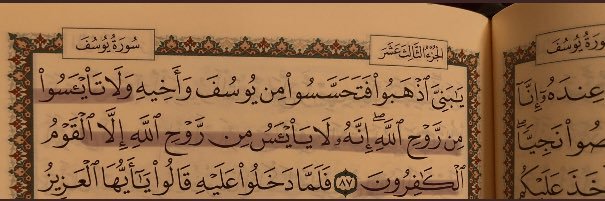 الجزء الثالث عشر
سورة يوسف
يَٰبَنِىَّ ٱذْهَبُوا۟ فَتَحَسَّسُوا۟ مِن يُوسُفَ وَأَخِيهِ وَلَا تَا۟يْـَٔسُوا۟
مِن رَّوْحِ ٱللَّهِ ۖ إِنَّهُۥ لَا يَا۟يْـَٔسُ مِن رَّوْحِ ٱللَّهِ إِلَّا ٱلْقَوْمُ
ٱلْكَٰفِرُونَ ٨٧ فَلَمَّا دَخَلُوا۟ عَلَيْهِ قَالُوا۟ يَٰٓأَيُّهَا ٱلْعَزِيزُ
سورة يوسف
عِندَهُۥٓ إِنَّآ
نَجِيًّا ۖ
عَلَيْكُم